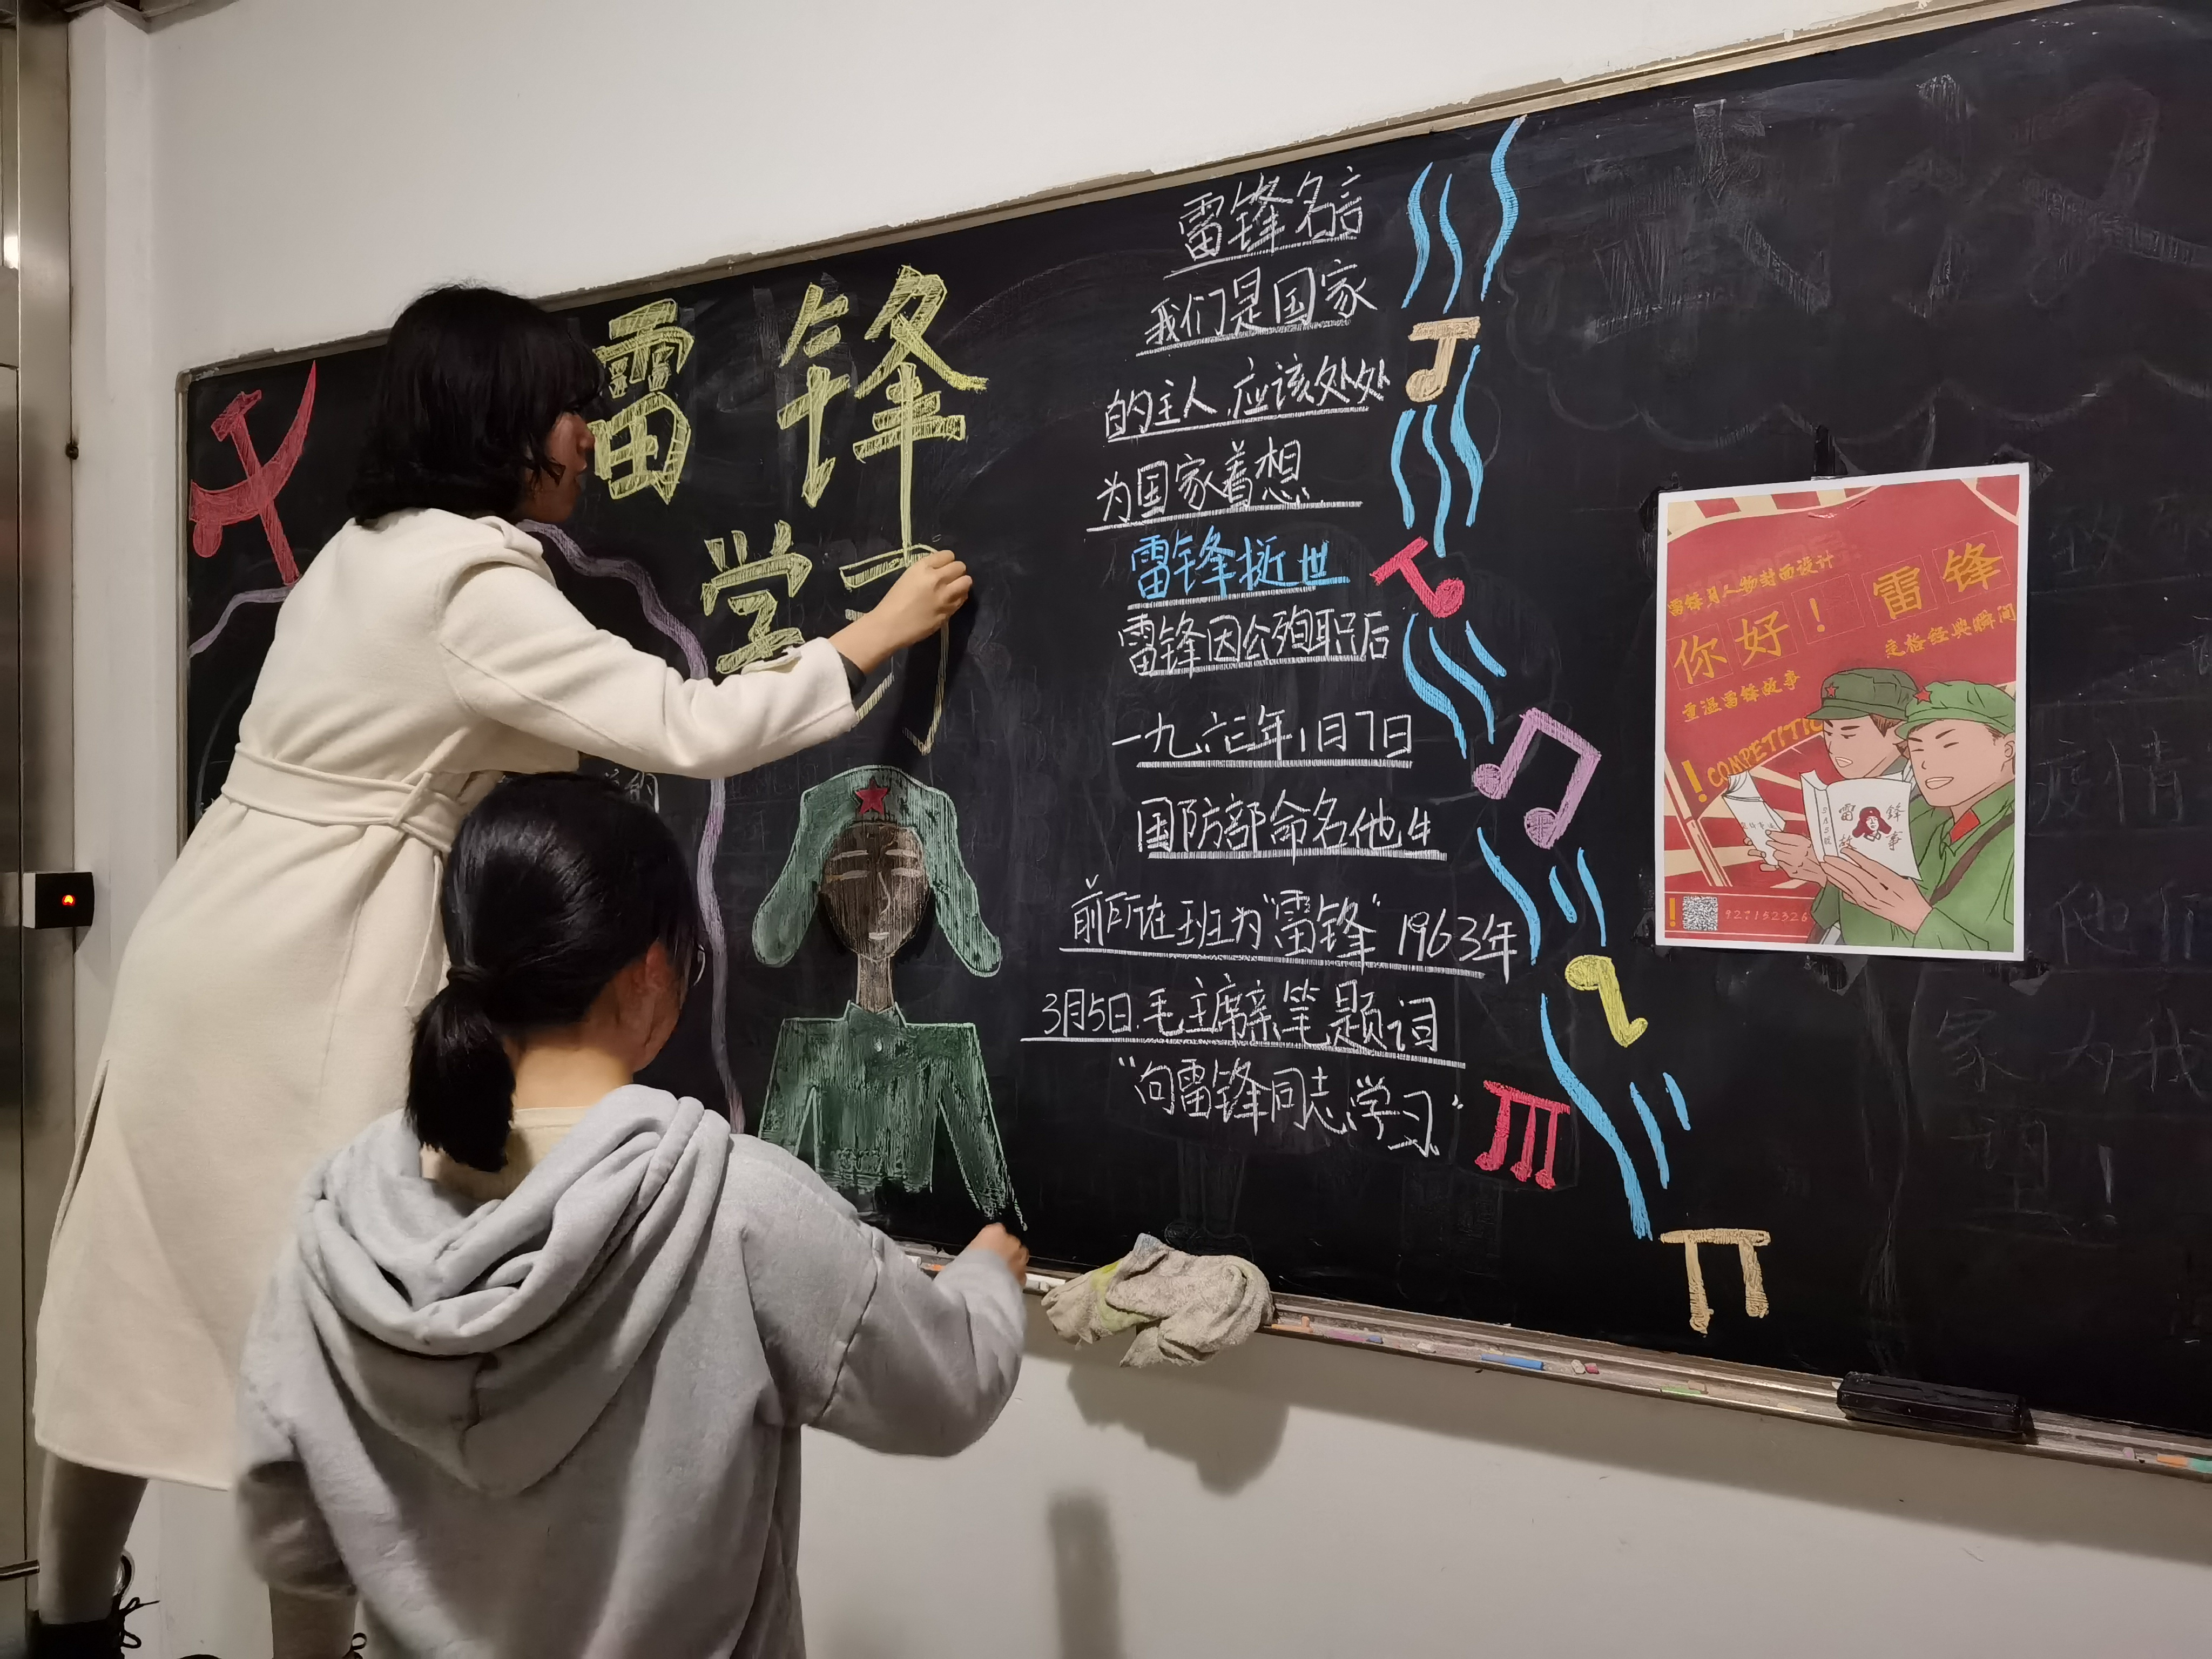 雷锋
学习
雷锋名言
我们是国家
的主人,应该处处
为国家着想.
雷锋逝世
雷锋因公殉职后
一九六三年1月7日
国防部命名他生
前所在班为"雷锋"1963年
3月5日.毛主席亲笔题词
"向雷锋同志学习"
雷锋月人物封面设计
你好!雷锋
定格经典瞬间
重温雷锋故事
!COMPETITIO
雷锋
故事
!
927152326